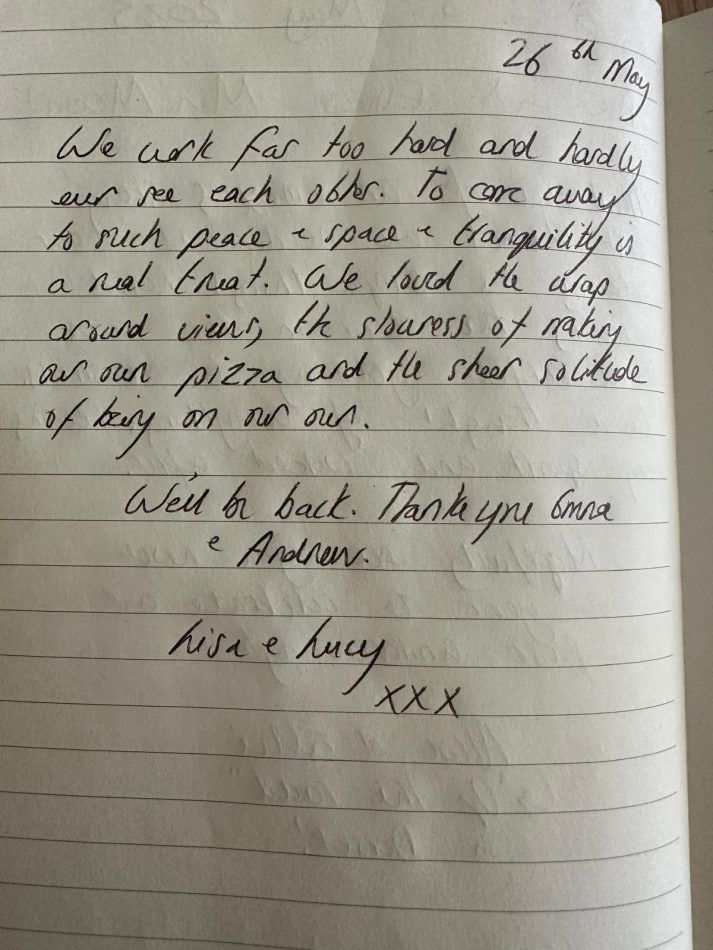 26th May
We work far too hard and hardly
ever see each other. To come away
to such peace & space & tranquility is
a real treat. We loved the wrap
around views, the slowness of making
our own pizza and the sheer solitude
of being on our own.
We'll be back. Thank you Emma
& Andrew.
Lisa & Lucy
xxx